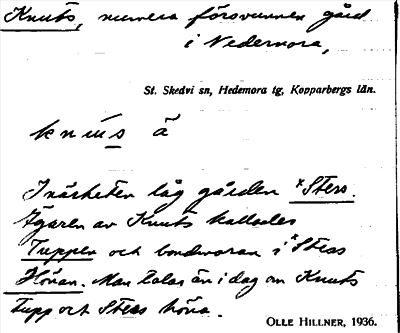 Knuts, numera försvunnen gård
i Nedernora,
St. Skedvi sn, Hedemora tg, Kopparbergs län.
knūs ä
I närheten låg gården ˣSters.
Ägaren av Knuts kallades
Tuppen och bondmoran i ˣSters
Hönan. Man talas än i dag om Knuts
tupp och Sters höna.
OLLE HILLNER, 1936.